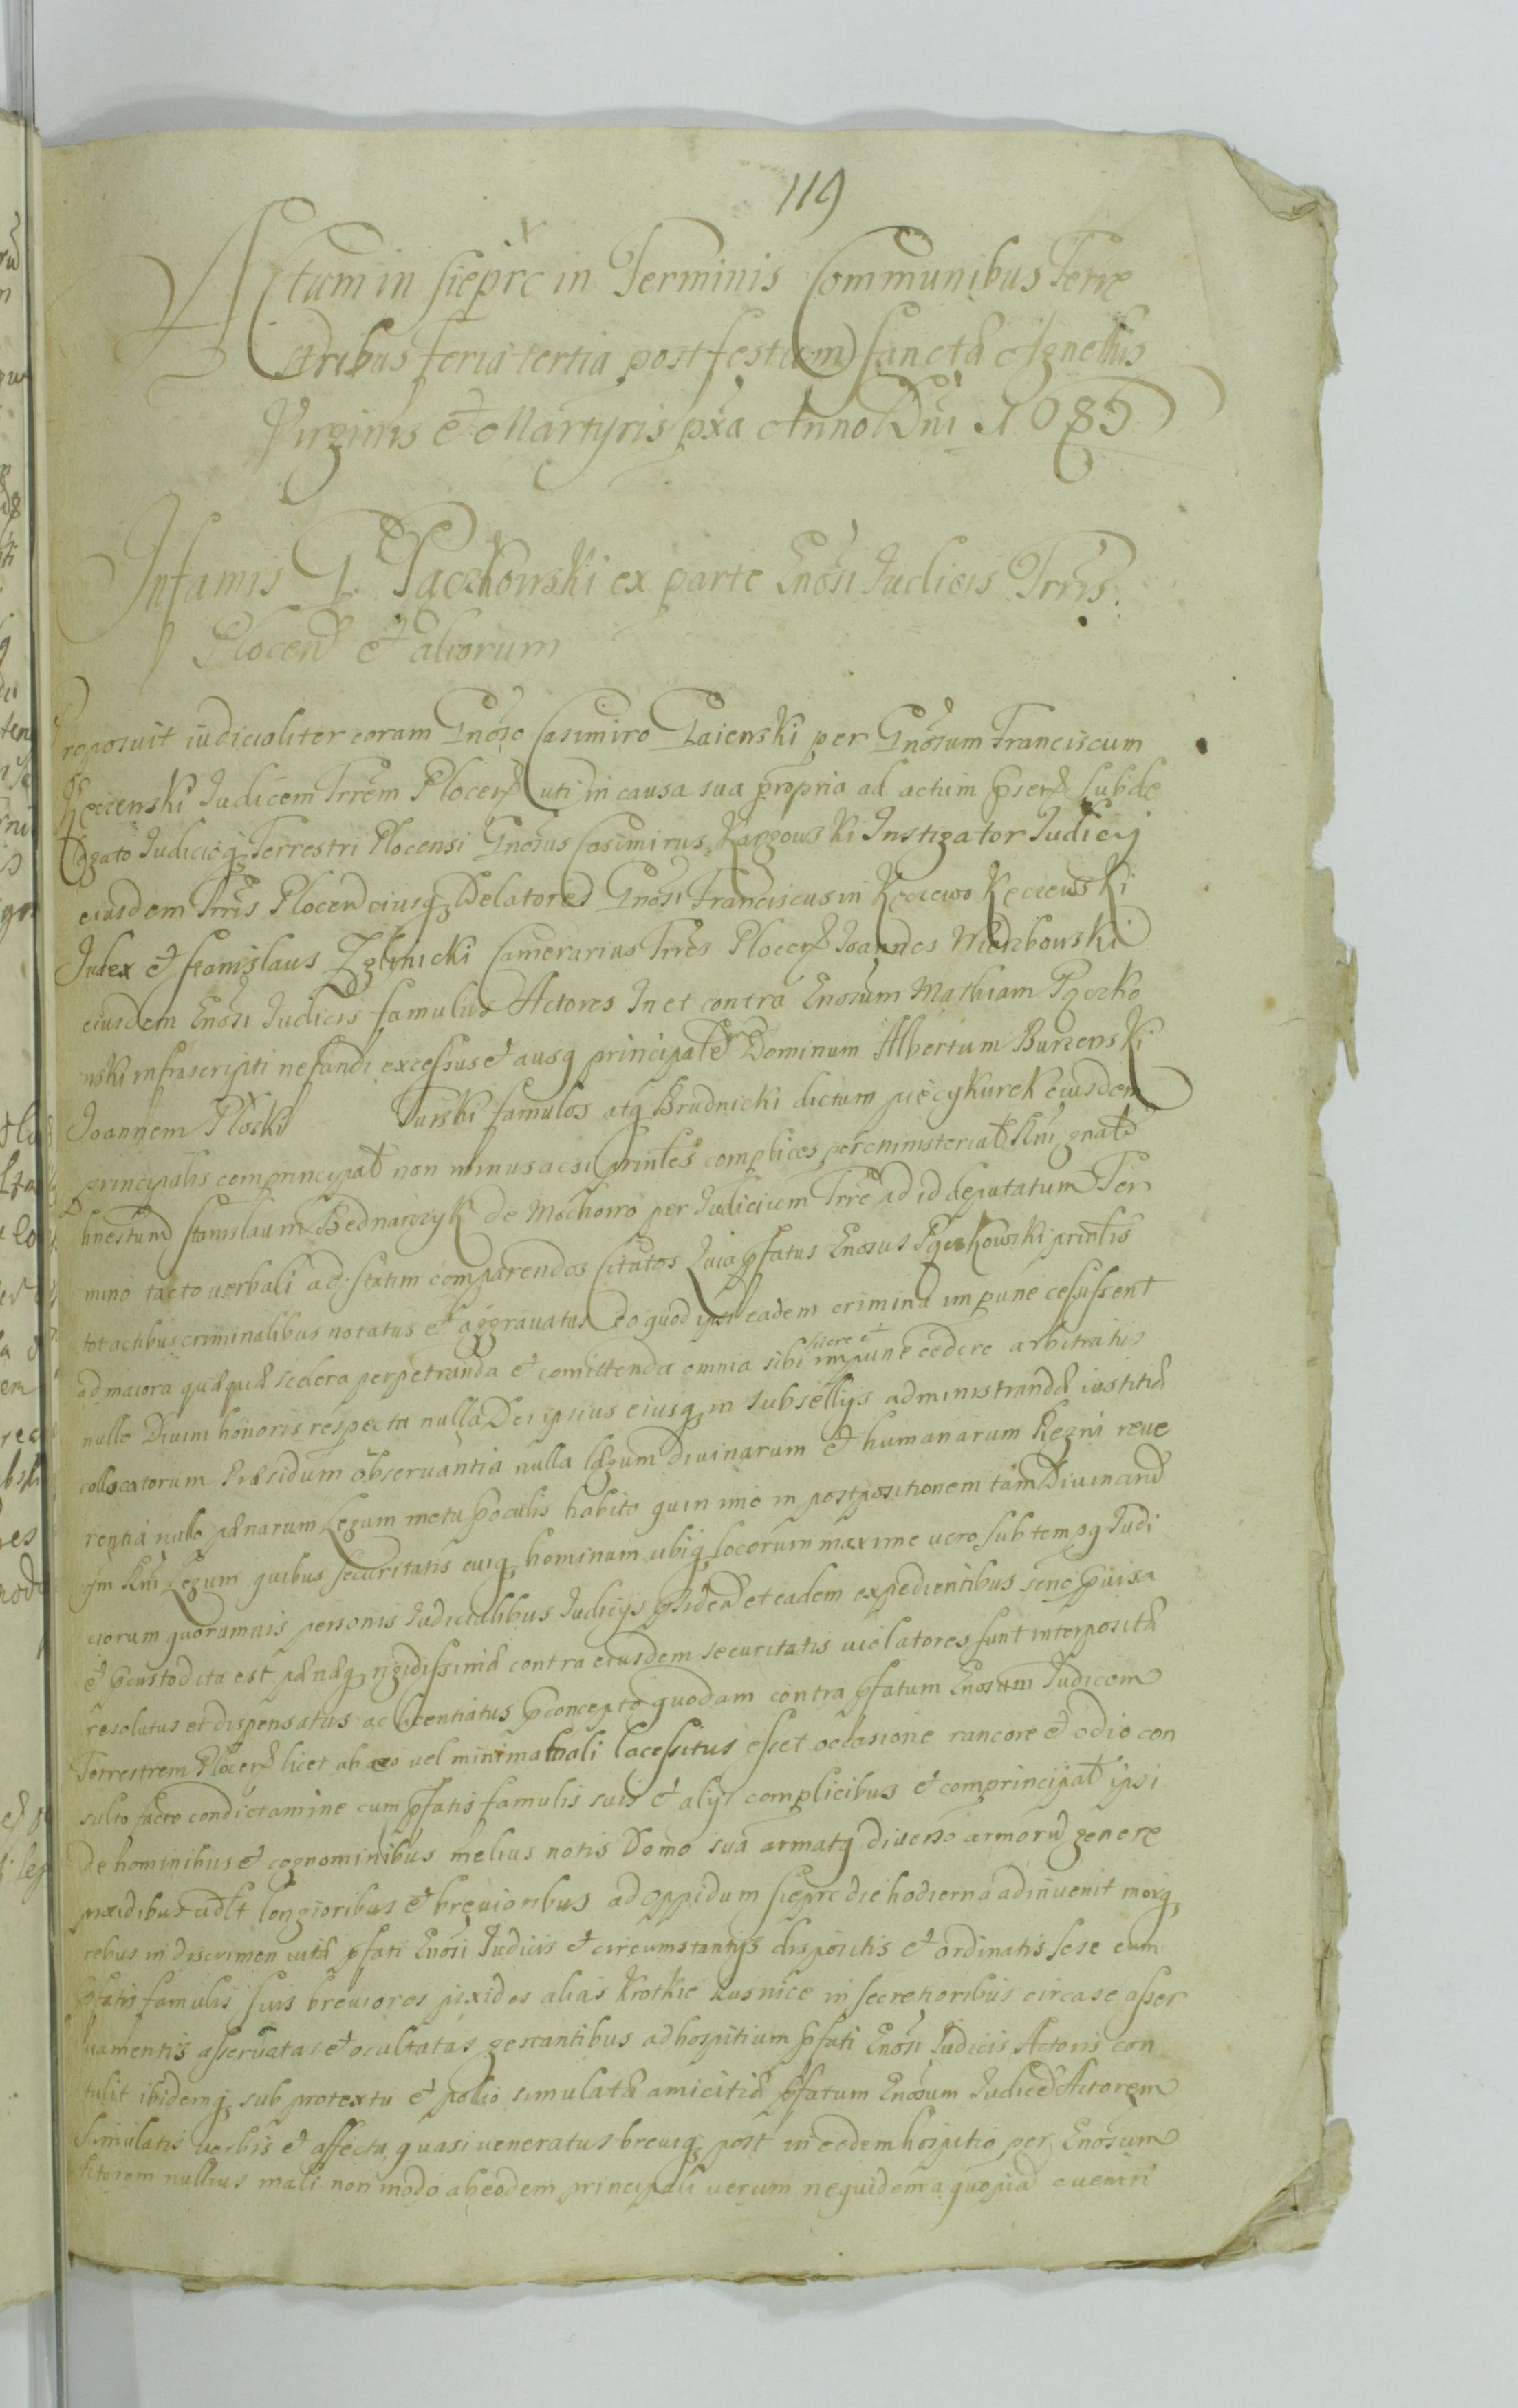 119
Actum in Sieprc in Terminis Communibus Terre
stribus feria tertia post festum Sanctæ Agnetis
Virginis et Martyris pxa Anno Dni 1685
Infamis G. Paczkowski ex parte Gnosi Judicis Trris
Plocen et aliorum
Proposuit iudicialiter coram Gnoso Casimiro Gaienski per Gnosum Franciscum
Kęczewski Judicem Trrem Plocen uti in causa sua propria ad actum psen subde
legato Judicioq Terrestri Plocensi Gnosus Casimirus Kargowski Instigator Judicij
eiusdem Trris Plocen eiusq Delatores Gnosi Franciscus in Kęczewo Kęczewski
Judex et Stanislaus Zglinicki Camerarius Trris Plocen Joannes Wierzbowski
eiusdem Gnosi Judicis famulus Actores In et contra Gnosum Mathiam Pączko
wski infrascripti nefandi excessus et ausq principalem Dominum Albertum Burzenski
Joannem Ploski Turski famulos atq Brudnicki dictum pięcykurek eiusdem
principalis comprincipat non minus ac si printes complices per ministeriat Rni gnat
hnestum Stanislaum Bednarczyk de Mochowo per Judicium Trre ad id deputatum Ter
mino tacto verbali ad statim comparendos citatos Quia pfatus Gnosus Pączkowski printis
tot actibus criminalibus notatus et aggravatus eo quod ipsi eadem crimina impune cessissent
ad maiora quæquæ scelera perpetranda et comittenda omnia sibi licere et impune cedere arbitratus
nullo Divini honoris respectu nulla Dei ipsius eiusq in subsellijs administrandæ iustitiæ
collocatorum Præsidum observantia nulla legum divinarum et humanarum Regni reve
rentia nullo pænarum Legum metu poculis habito quin imo in postpositionem tam Divinarum
qm Rni Legum quibus securitatis cuiq hominum ubiq locorum maxime vero sub tempq Judi
ciorum quoramvis personis Judicialibus Judicijs psiden et eadem expedientibus sene pvisa
et pcustodita est pænæq rigidissimæ contra eiusdem securitatis violatores sunt interpositæ
resolutus et dispensatus ac licentiatus pconcepto quodam contra pfatum Gnosum Judicem
Terrestrem Plocen licet ab eo vel minima mali lacessitus esset occasione rancore et odio con
sulto facto condictamine cum pfatis famulis suis et alijs complicibus et comprincipat ipsi
de hominibus et cognominibus melius notis Domo sua armatq diverso armorum genere
pixidibus vdlt longioribus et brevioribus ad oppidum Sieprc die hodierna adinvenit moxq
rebus in discrimen vitæ pfati Gnosi Judicis et circumstantijs dispositis et ordinatis sese cum
pfatis famulis suis breviores pixides alias krotkie rusnice in secretioribus circa se asser
vamentis asservatas et ocultatas gestantibus ad hospitium pfati Gnosi Judicis Actoris con
tulit ibidemq sub protextu et pallio simulatæ amicitiæ pfatum Gnosum Judicem Actorem
simulatis verbis et affectu quasi veneratus breviq post in eodem hospitio per Gnosum
Actorem nullius mali non modo ab eodem principali verum nequidem a quopiam eveniri